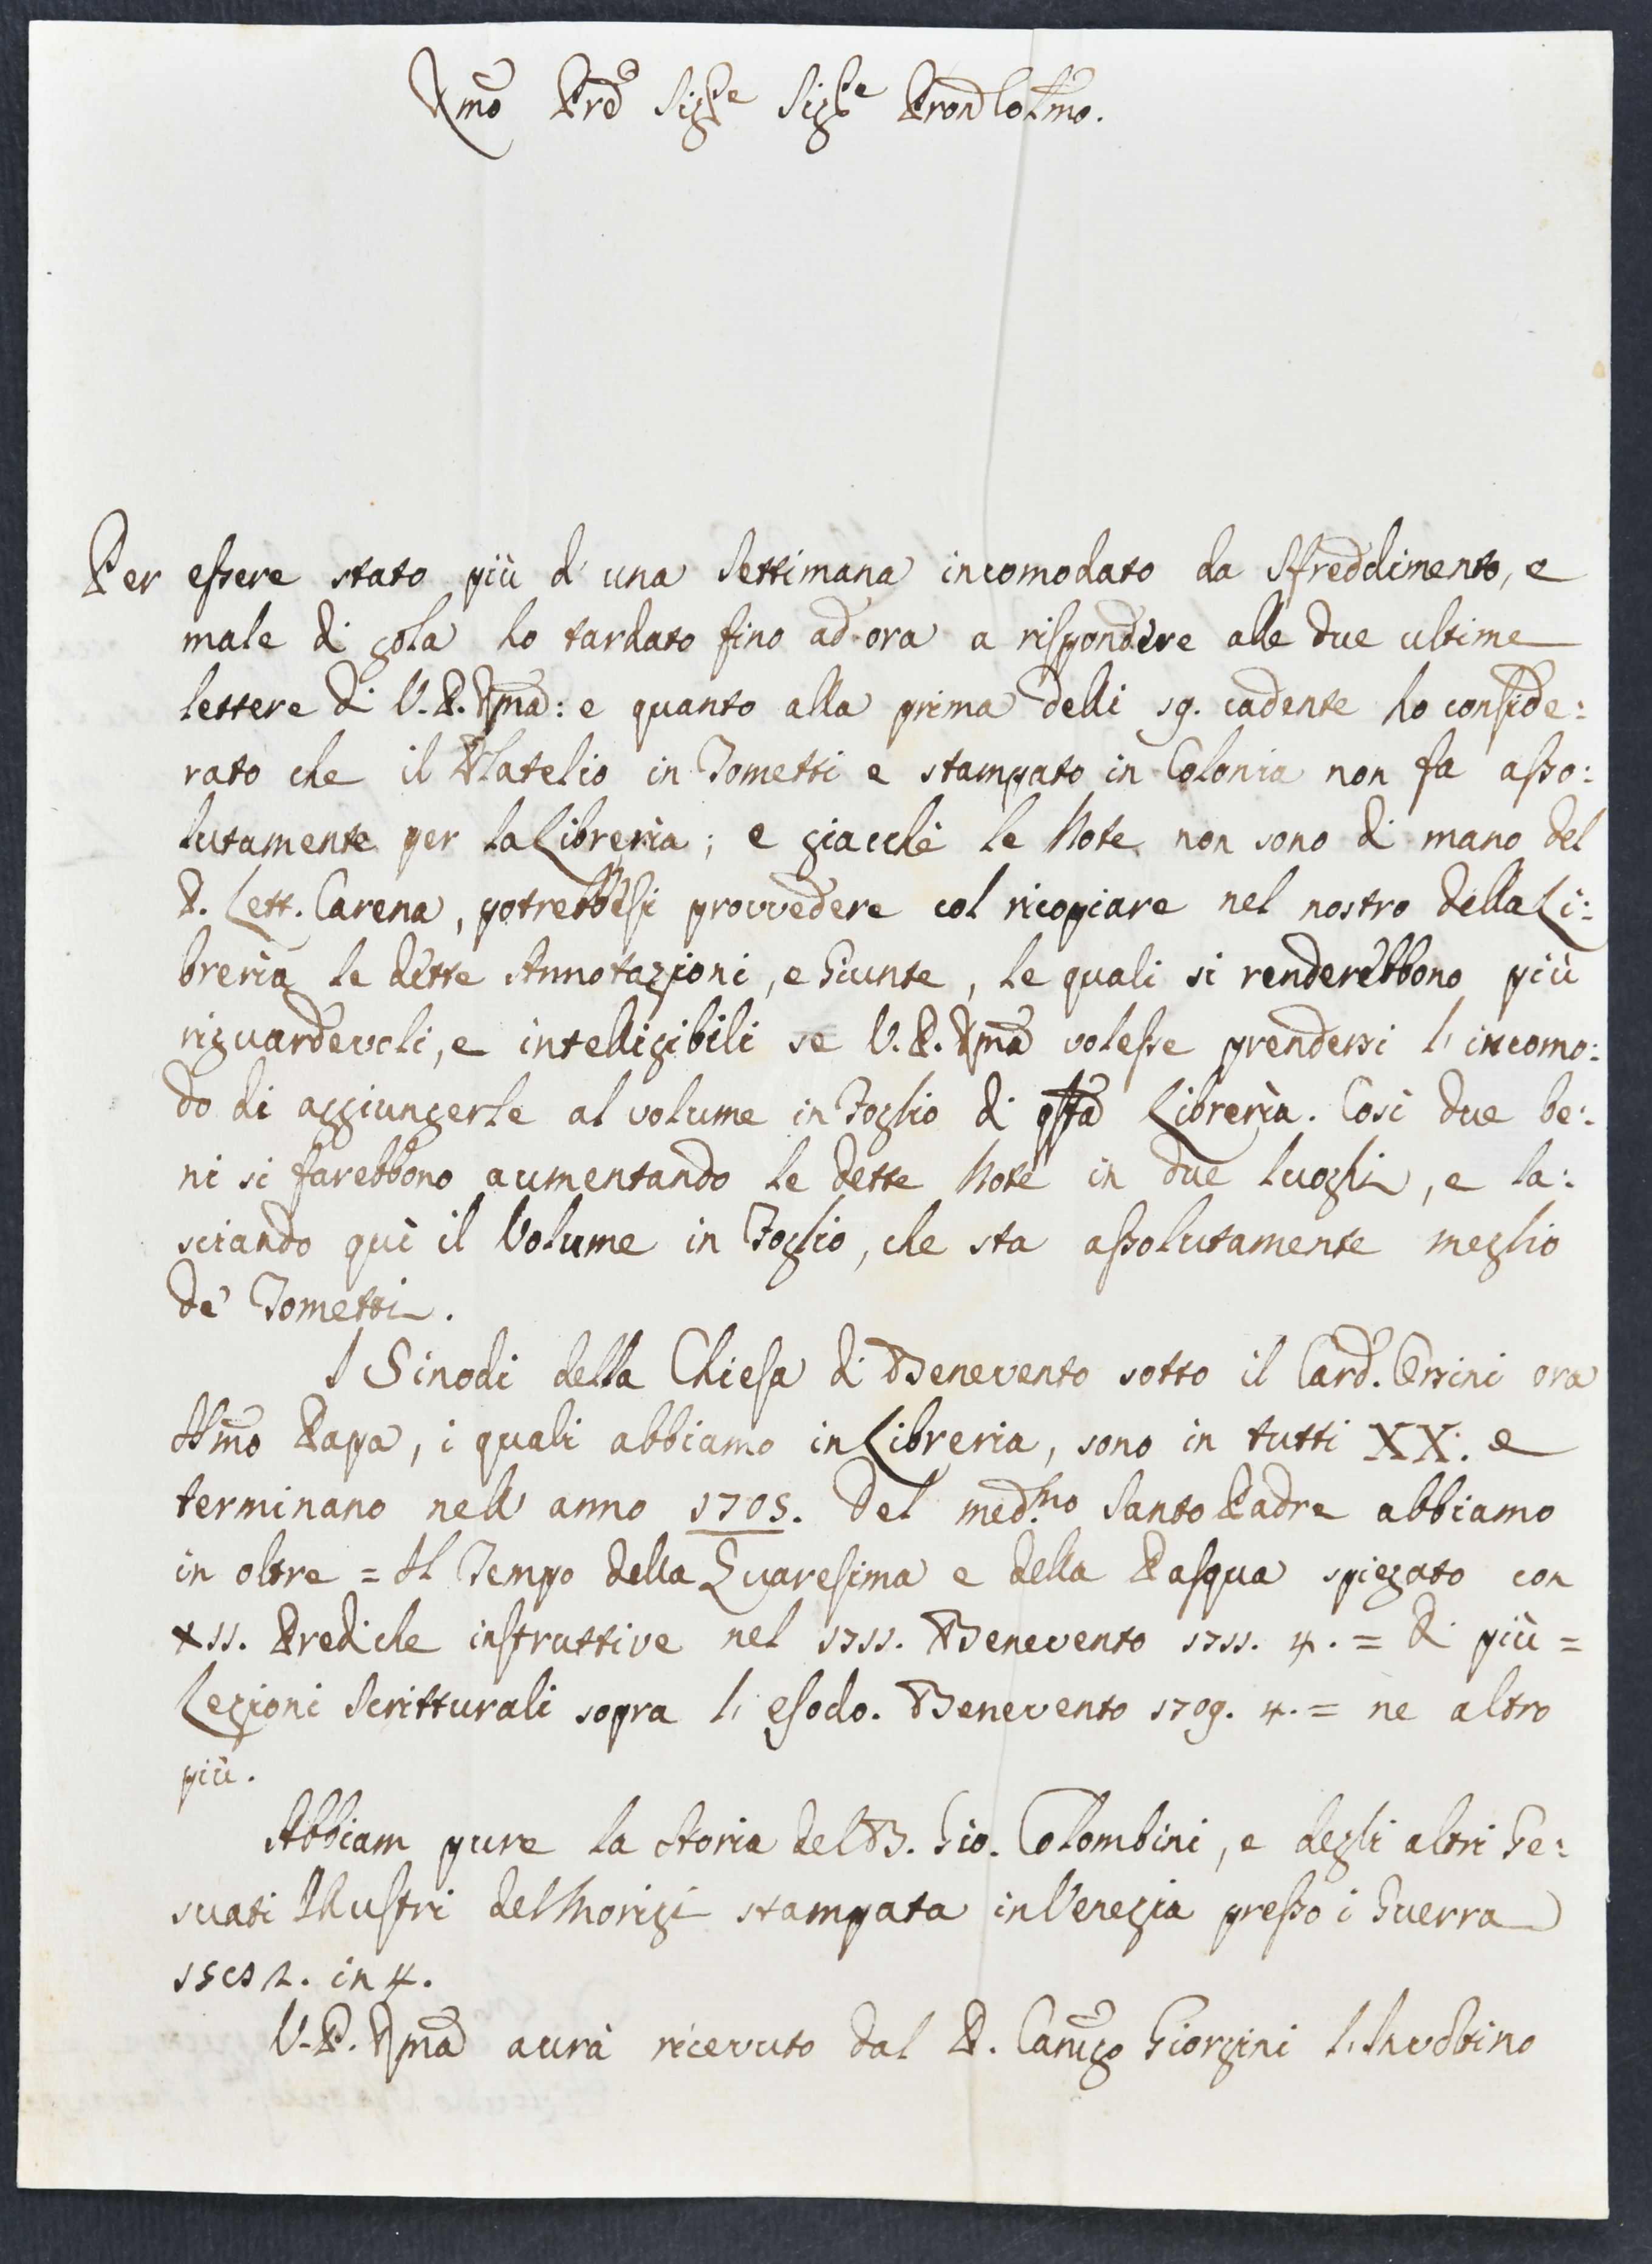 Rmo Prē Sigre Sigre Pron Colmo.
Per essere stato più d'una settimana incomodato da sfreddimento, e
male di gola ho tardato fino ad ora a rispondere alle due ultime
lettere di V. P. Rma: e quanto alla prima delli 19. cadente ho conside:
rato che il Platelio in Tometti e stampato in Colonia non fa asso:
lutamente per la Libreria; e giacchè le Note non sono di mano del
P. Lett. Carena, potrebbesi provvedere col ricopiare nel nostro della Li:
breria le dette Annotazioni, e Giunte, le quali si renderebbono più
riguardevoli, e intelligibili se V. P. Rma volesse prendersi l'incomo:
do di aggiungerle al volume in Foglio di qsta Libreria. Così due be:
ni si farebbono aumentando le dette Note in due luoghi, e la:
sciando quì il Volume in Foglio, che sta assolutamente meglio
de' Tometti.
I Sinodi della Chiesa di Benevento sotto il Card. Orsini ora
Ssmo Papa, i quali abbiamo in Libreria, sono in tutti XX. e
terminano nell'anno 1705. Del medmo Santo Padre abbiamo
in oltre = Il Tempo della Quaresima e della Pasqua spiegato con
x11. Prediche instruttive nel 1711. Benevento 1711. 4. = Di più =
Lezioni Scritturali sopra l'esodo. Benevento 1709. 4. = ne altro
più.
Abbiam pure la Storia del B. Gio. Colombini, e degli altri Ge:
suati Illustri del Morigi stampata in Venezia presso i Guerra
in 4.
V. P. Rma aurà ricevuto dal P. Giorgini